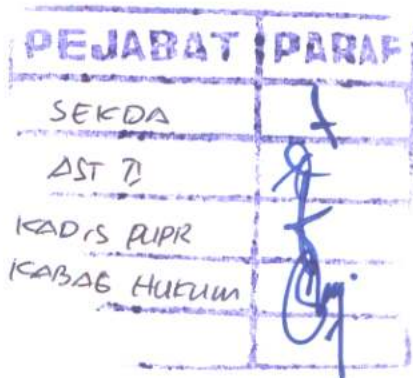 PEJABAT PARAF
SEKDA
AST II
KADIS PUPR
KABAG HUKUM